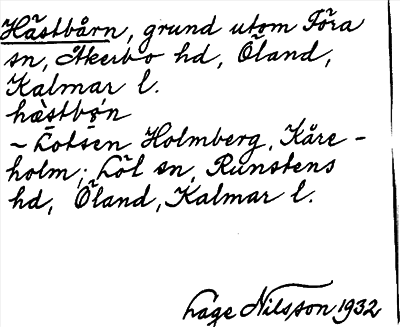 Hästbårn, grund utom Föra
sn, Åkerbo hd, Öland,
Kalmar l.
hæstbǫ́n
~ Lotsen Holmberg, Kåre-
holm; Löt sn, Runstens
hd, Öland, Kalmar l.
Lage Nilsson 1932